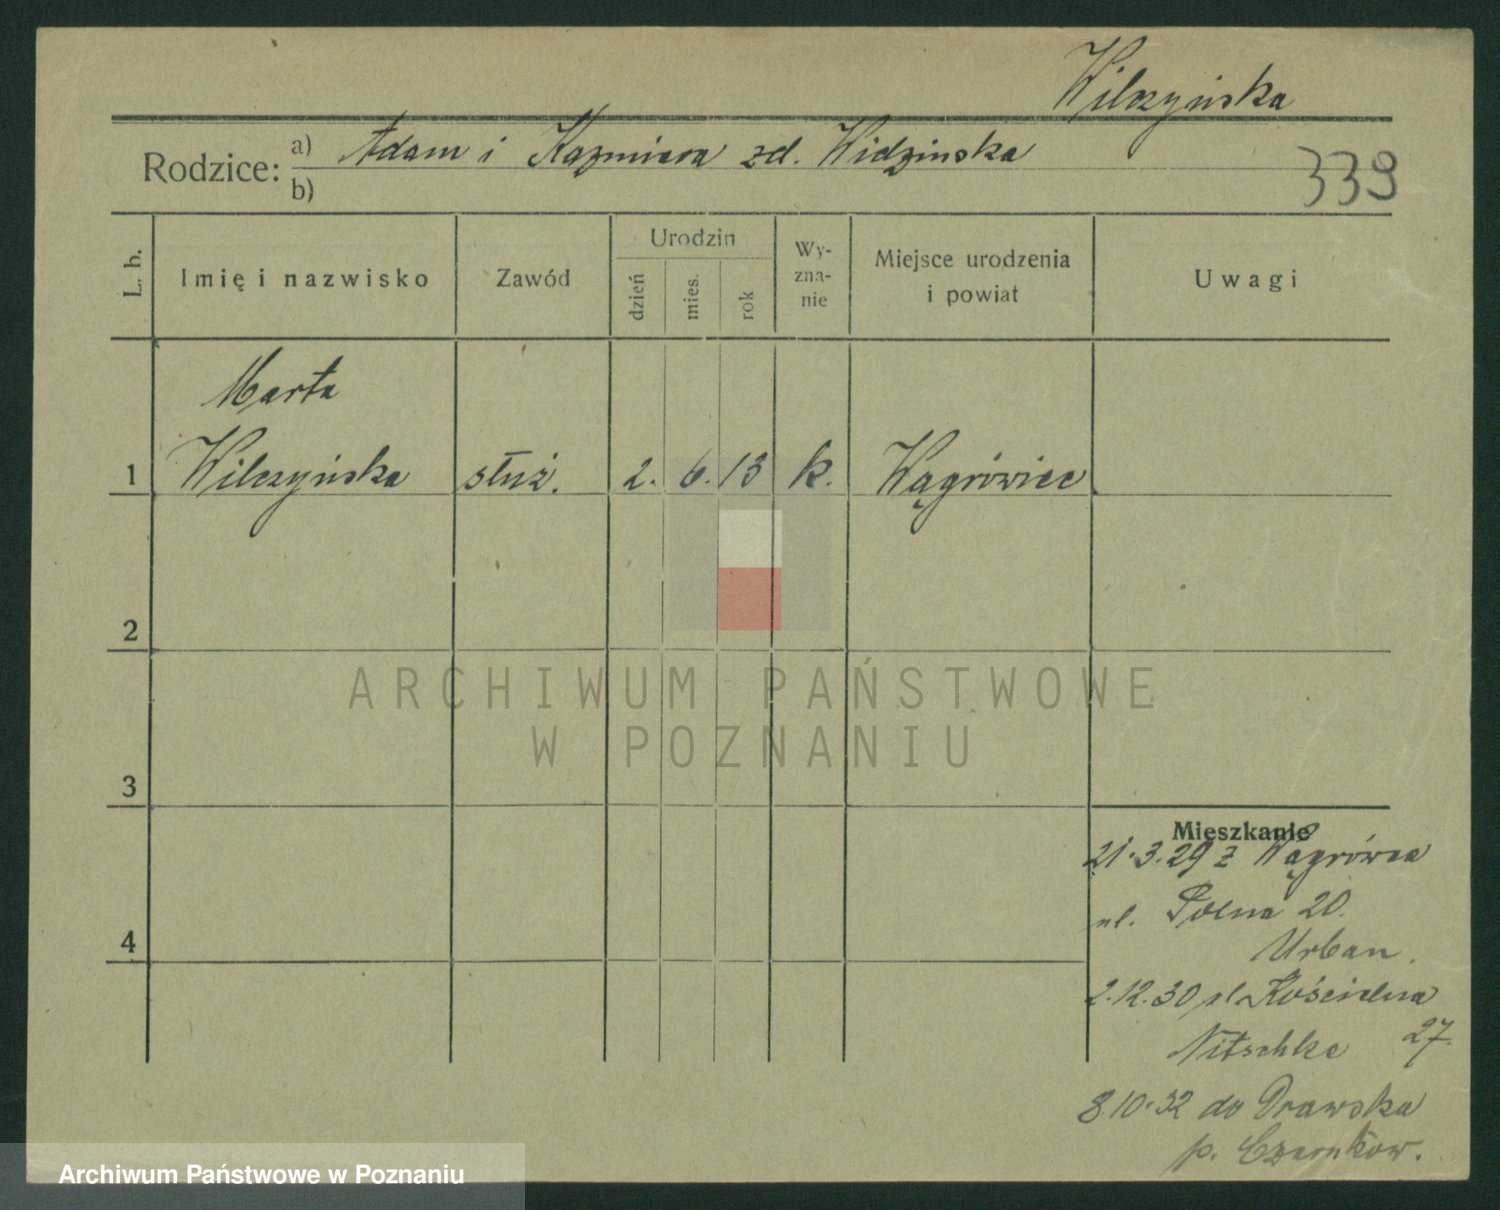 Wilczyńska
Rodzice: a) Adam i Kazmiera zd. Widzinska
b)
339
L. b.
Imię i nazwisko
Zawód
Urodzin
dzień
mies.
rok
Wy-
zna-
nie
Miejsce urodzenia
i powiat
Uwagi
Marta
1 Wilczyńska służ. 2. 6. 13 k. Wągrówiec
2
ARCHIWUM PAŃSTWOWE
W POZNANIU
3
Mieszkanie
21.3.29 z Wągrówca
ul. Polna 20.
Urban.
4
2.12.30 ul. Kościelna
27.
Nitschke
8.10.32 do Drawska
p. Czarnków.
Archiwum Państwowe w Poznaniu